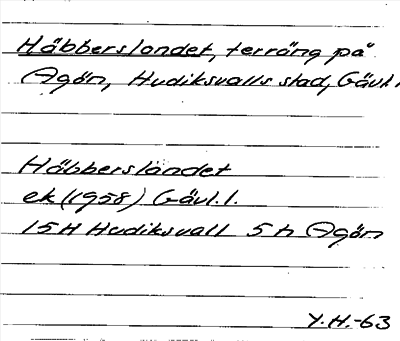 Häbberslandet, terräng på
Agön, Hudiksvalls stad, Gävl.l
Häbberslandet
ek (1958) Gävl.l.
15H Hudiksvall 5h Agön
Y.H.-63